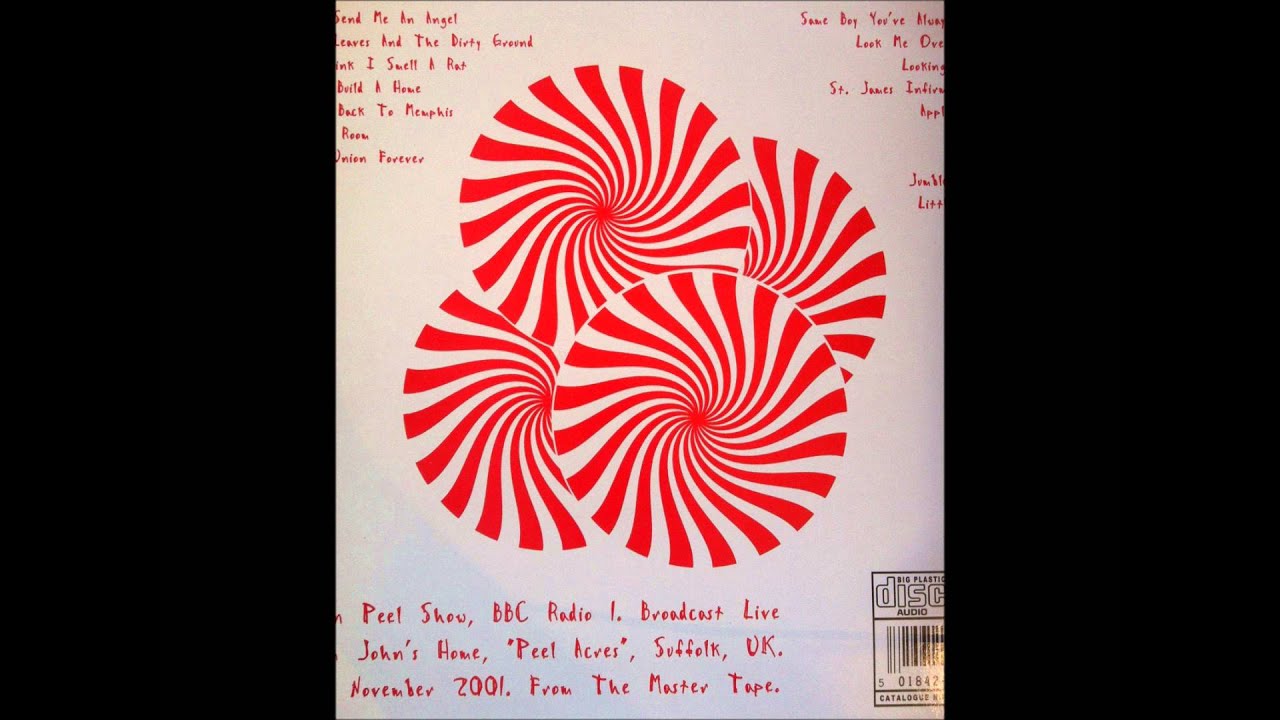 Send Me An Angel
Leaves And The Dirty Ground
ink I Smell A Rat
Build A Home
Back To Memphis
Room
Union Forever
Same Boy You've Alway
Look Me Ove
Looking
St. James Infirm
Appl
Jumble
Litt
n Peel Show, BBC Radio 1. Broadcast Live
John's Home, "Peel Acres", Suffolk, UK.
November 2001. From The Master Tape.
BIG PLASTIC
disc
AUDIO
5 01842
CATALOGUE N